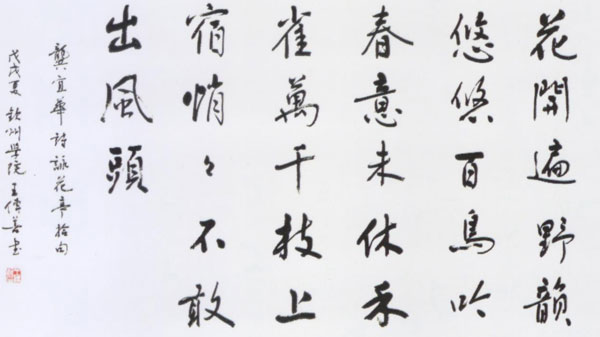 花開遍野韻
悠悠百鳥吟
春意未休禾
雀萬千枝上
宿悄々不敢
出風頭
龔宜華詩詠花亭拾句
戊戌夏 欽州學院 王善書